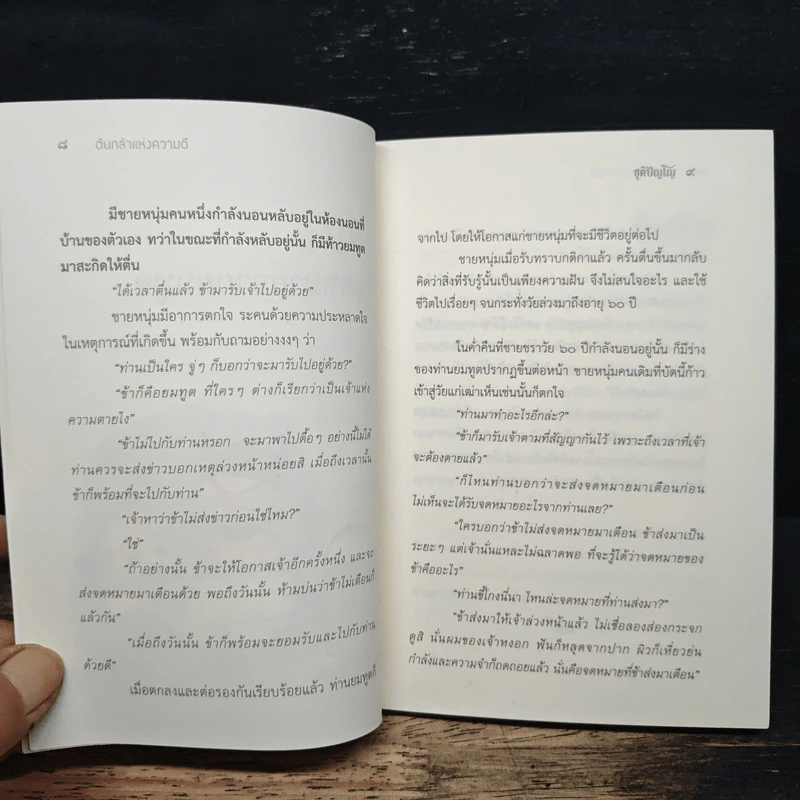 ๘ ต้นกล้าแห่งความดี
มีชายหนุ่มคนหนึ่งกำลังนอนหลับอยู่ในห้องนอนที่
บ้านของตัวเอง ทว่าในขณะที่กำลังหลับอยู่นั้น ก็มีท้าวยมทูต
มาสะกิดให้ตื่น
“ได้เวลาตื่นแล้ว ข้ามารับเจ้าไปอยู่ด้วย”
ชายหนุ่มมีอาการตกใจ ระคนด้วยความประหลาดใจ
ในเหตุการณ์ที่เกิดขึ้น พร้อมกับถามอย่างงงๆ ว่า
“ท่านเป็นใคร จู่ๆ ก็บอกว่าจะมารับไปอยู่ด้วย?”
“ข้าก็คือยมทูต ที่ใครๆ ต่างก็เรียกว่าเป็นเจ้าแห่ง
ความตายไง”
“ข้าไม่ไปกับท่านหรอก จะมาพาไปดื้อๆ อย่างนี้ไม่ได้
ท่านควรจะส่งข่าวบอกเหตุล่วงหน้าหน่อยสิ เมื่อถึงเวลานั้น
ข้าก็พร้อมที่จะไปกับท่าน”
“เจ้าหาว่าข้าไม่ส่งข่าวก่อนใช่ไหม?”
“ใช่”
“ถ้าอย่างนั้น ข้าจะให้โอกาสเจ้าอีกครั้งหนึ่ง และจะ
ส่งจดหมายมาเตือนด้วย พอถึงวันนั้น ห้ามบ่นว่าข้าไม่เตือนก็
แล้วกัน”
“เมื่อถึงวันนั้น ข้าก็พร้อมจะยอมรับและไปกับท่าน
ด้วยดี”
เมื่อตกลงและต่อรองกันเรียบร้อยแล้ว ท่านยมทูตก็
ชุติปัญโญ ๙
จากไป โดยให้โอกาสแก่ชายหนุ่มที่จะมีชีวิตอยู่ต่อไป
ชายหนุ่มเมื่อรับทราบกติกาแล้ว ครั้นตื่นขึ้นมากลับ
คิดว่าสิ่งที่รับรู้นั้นเป็นเพียงความฝัน จึงไม่สนใจอะไร และใช้
ชีวิตไปเรื่อยๆ จนกระทั่งวัยล่วงมาถึงอายุ ๖๐ ปี
ในค่ำคืนที่ชายชราวัย ๖๐ ปีกำลังนอนอยู่นั้น ก็มีร่าง
ของท่านยมทูตปรากฏขึ้นต่อหน้า ชายหนุ่มคนเดิมที่บัดนี้ก้าว
เข้าสู่วัยแก่เฒ่าเห็นเช่นนั้นก็ตกใจ
“ท่านมาทำอะไรอีกล่ะ?”
“ข้าก็มารับเจ้าตามที่สัญญากันไว้ เพราะถึงเวลาที่เจ้า
จะต้องตายแล้ว”
“ก็ไหนท่านบอกว่าจะส่งจดหมายมาเตือนก่อน
ไม่เห็นจะได้รับจดหมายอะไรจากท่านเลย?”
“ใครบอกว่าข้าไม่ส่งจดหมายมาเตือน ข้าส่งมาเป็น
ระยะๆ แต่เจ้านั่นแหละไม่ฉลาดพอ ที่จะรู้ได้ว่าจดหมายของ
ข้าคืออะไร”
“ท่านขี้โกงนี่นา ไหนล่ะจดหมายที่ท่านส่งมา?”
“ข้าส่งมาให้เจ้าล่วงหน้าแล้ว ไม่เชื่อลองส่องกระจก
ดูสิ นั่นผมของเจ้าหงอก ฟันก็หลุดจากปาก ผิวก็เหี่ยวย่น
กำลังและความจำก็ถดถอยแล้ว นั่นคือจดหมายที่ข้าส่งมาเตือน”